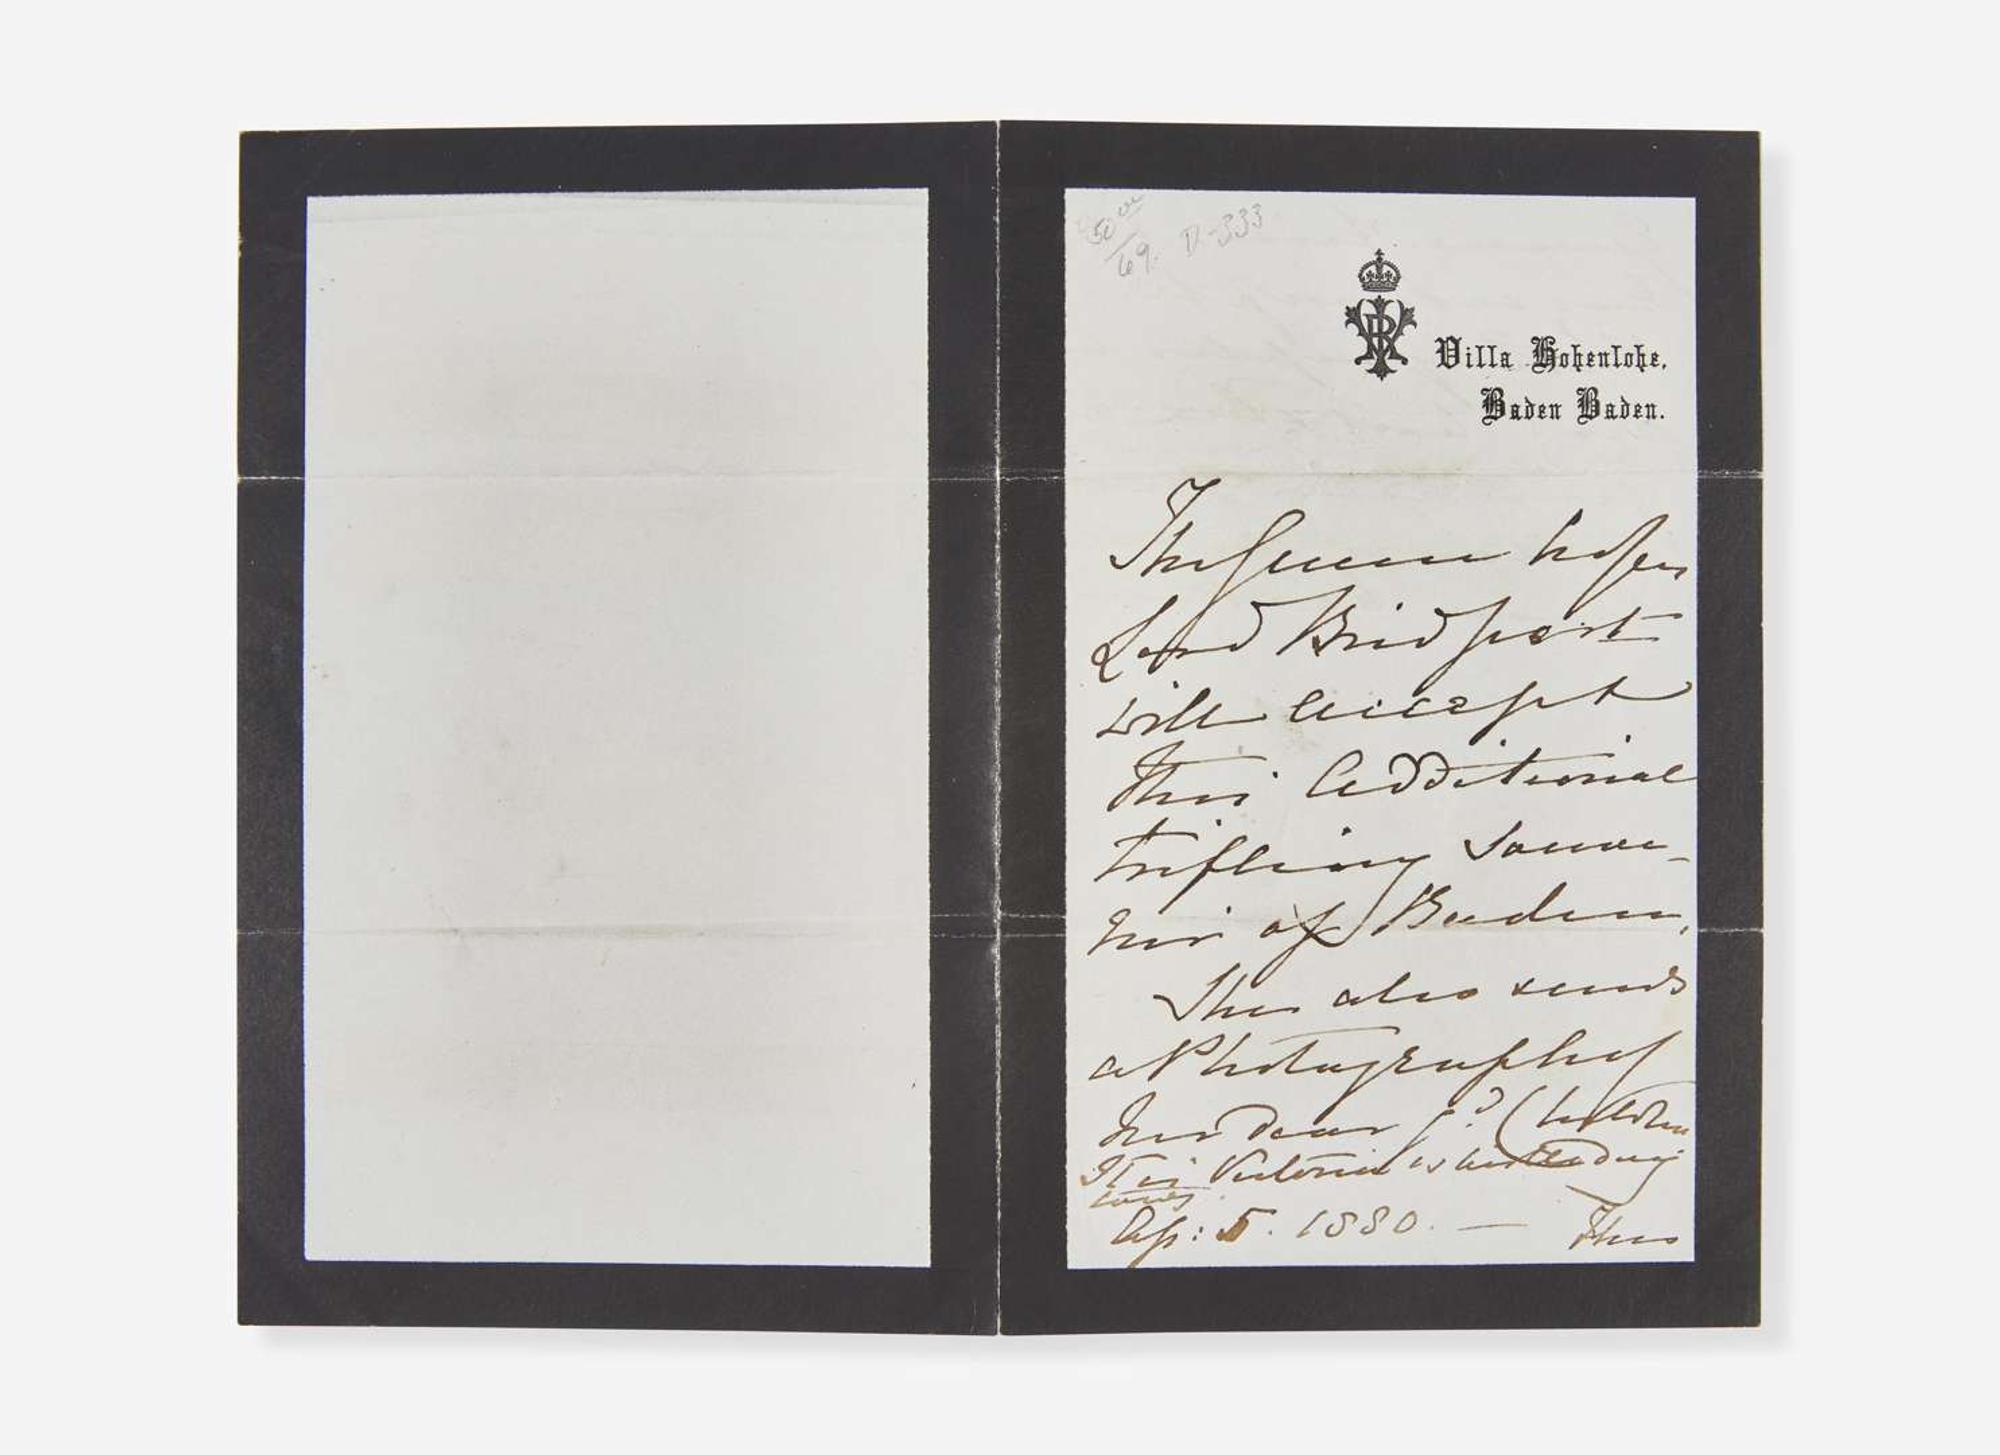 50 00
/69. D-333
VRI
Villa Hohenlohe,
Baden Baden.
The Queen hopes
Lord Bridport
will accept
this additional
trifling souve-
nir of Baden.
She also sends
a Photograph of
her dear Gd Children
It is Victoria's birthday
Ap: 5. 1880. — The